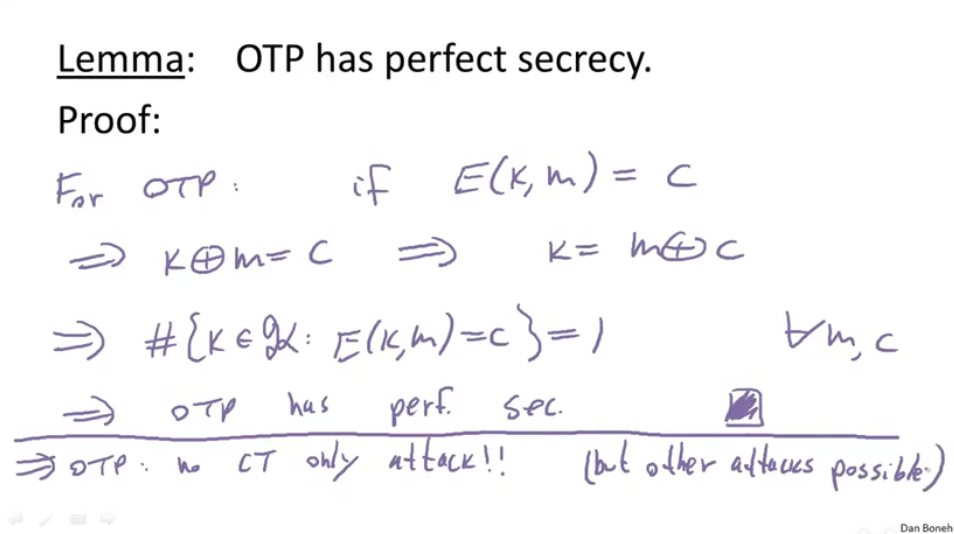 Lemma: OTP has perfect secrecy.
Proof:
For OTP: if E(k,m) = c
⟹ k⊕m = c ⟹ k = m⊕c
⟹ #{k∈𝒦: E(k,m)=c} = 1 ∀m,c
⟹ OTP has perf. sec.
⟹ OTP: no CT only attack!! (but other attacks possible)
Dan Boneh